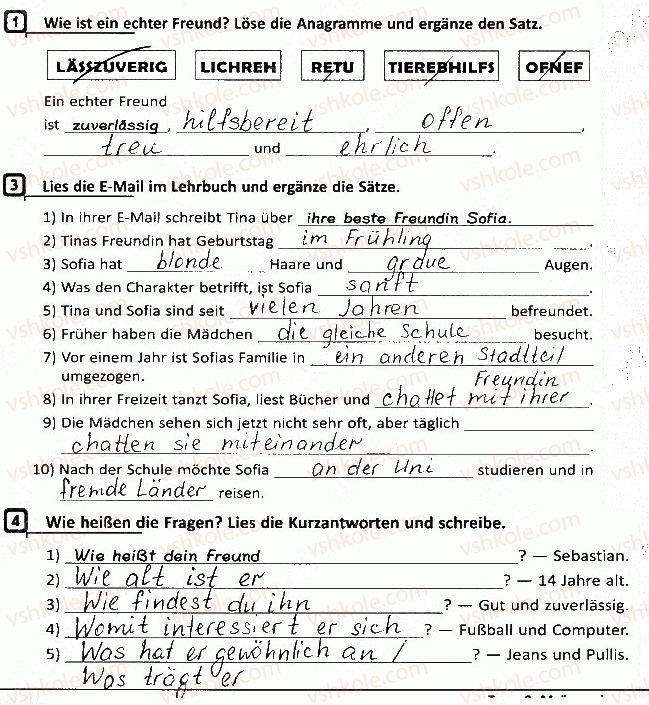 1 Wie ist ein echter Freund? Löse die Anagramme und ergänze den Satz.
LÄSSZUVERIG LICHREH RETU TIEREBHILFS OFNEF
Ein echter Freund
ist zuverlässig, hilfsbereit, offen,
treu und ehrlich.
3 Lies die E-Mail im Lehrbuch und ergänze die Sätze.
1) In ihrer E-Mail schreibt Tina über ihre beste Freundin Sofia.
2) Tinas Freundin hat Geburtstag im Frühling.
3) Sofia hat blonde Haare und graue Augen.
4) Was den Charakter betrifft, ist Sofia sanft.
5) Tina und Sofia sind seit vielen Jahren befreundet.
6) Früher haben die Mädchen die gleiche Schule besucht.
7) Vor einem Jahr ist Sofias Familie in ein anderen Stadtteil
umgezogen. Freundin
8) In ihrer Freizeit tanzt Sofia, liest Bücher und chattet mit ihrer.
9) Die Mädchen sehen sich jetzt nicht sehr oft, aber täglich
chatten sie miteinander.
10) Nach der Schule möchte Sofia an der Uni studieren und in
fremde Länder reisen.
4 Wie heißen die Fragen? Lies die Kurzantworten und schreibe.
1) Wie heißt dein Freund? — Sebastian.
2) Wie alt ist er? — 14 Jahre alt.
3) Wie findest du ihn? — Gut und zuverlässig.
4) Womit interessiert er sich? — Fußball und Computer.
5) Was hat er gewöhnlich an /? — Jeans und Pullis.
Was trägt er